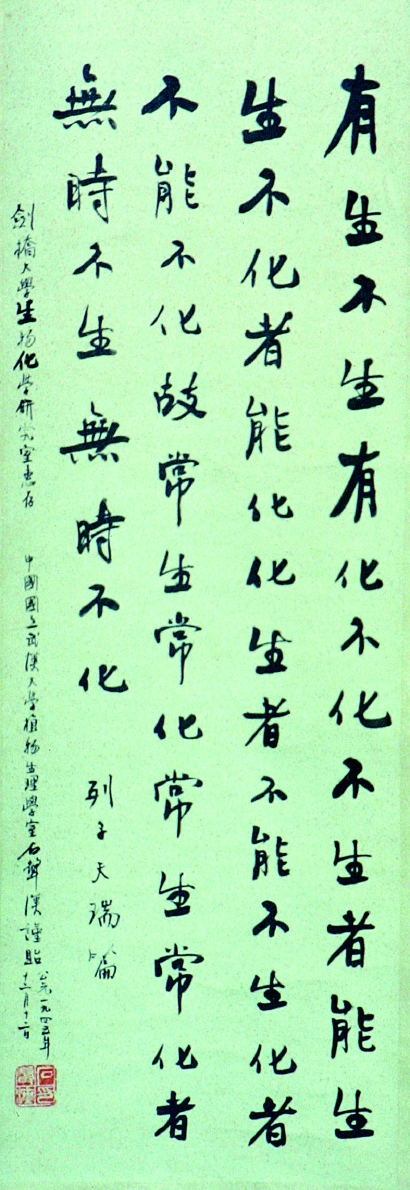 有生不生有化不化不生者能生
生不化者能化化生者不能不生化者
不能不化故常生常化常生常化者
無時不生無時不化
列子天瑞篇
劍橋大學生物化學研究室惠存
中國國立武漢大學植物生理學室石聲漢謹貽
公元一九四五年
十二月十二日